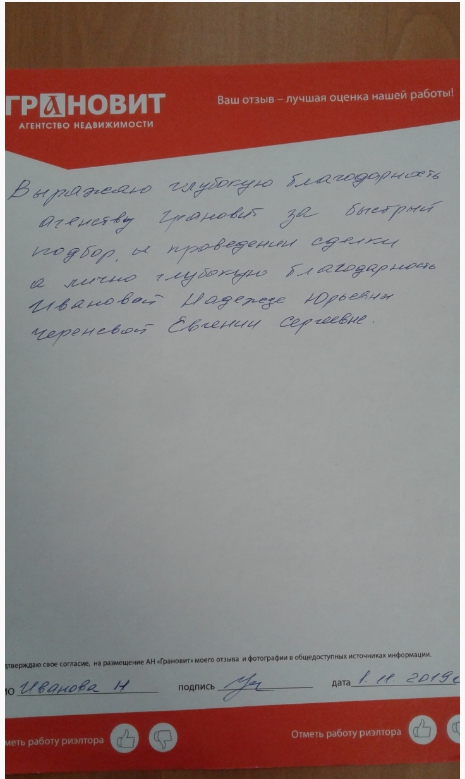 ГРАНОВИТ
АГЕНТСТВО НЕДВИЖИМОСТИ
Ваш отзыв – лучшая оценка нашей работы!
Выражаю глубокую благодарность
агенству Грановит за быстрый
подбор, и проведении сделки
а лично глубокую благодарность
Ивановой Надежде Юрьевны
Евгении Сергеевне.
дтверждаю свое согласие, на размещение АН «Грановит» моего отзыва и фотографии в общедоступных источниках информации.
ИО Иванова Н подпись дата 1. 11. 2019 г
метьте работу риэлтора Отметь работу риэлтора